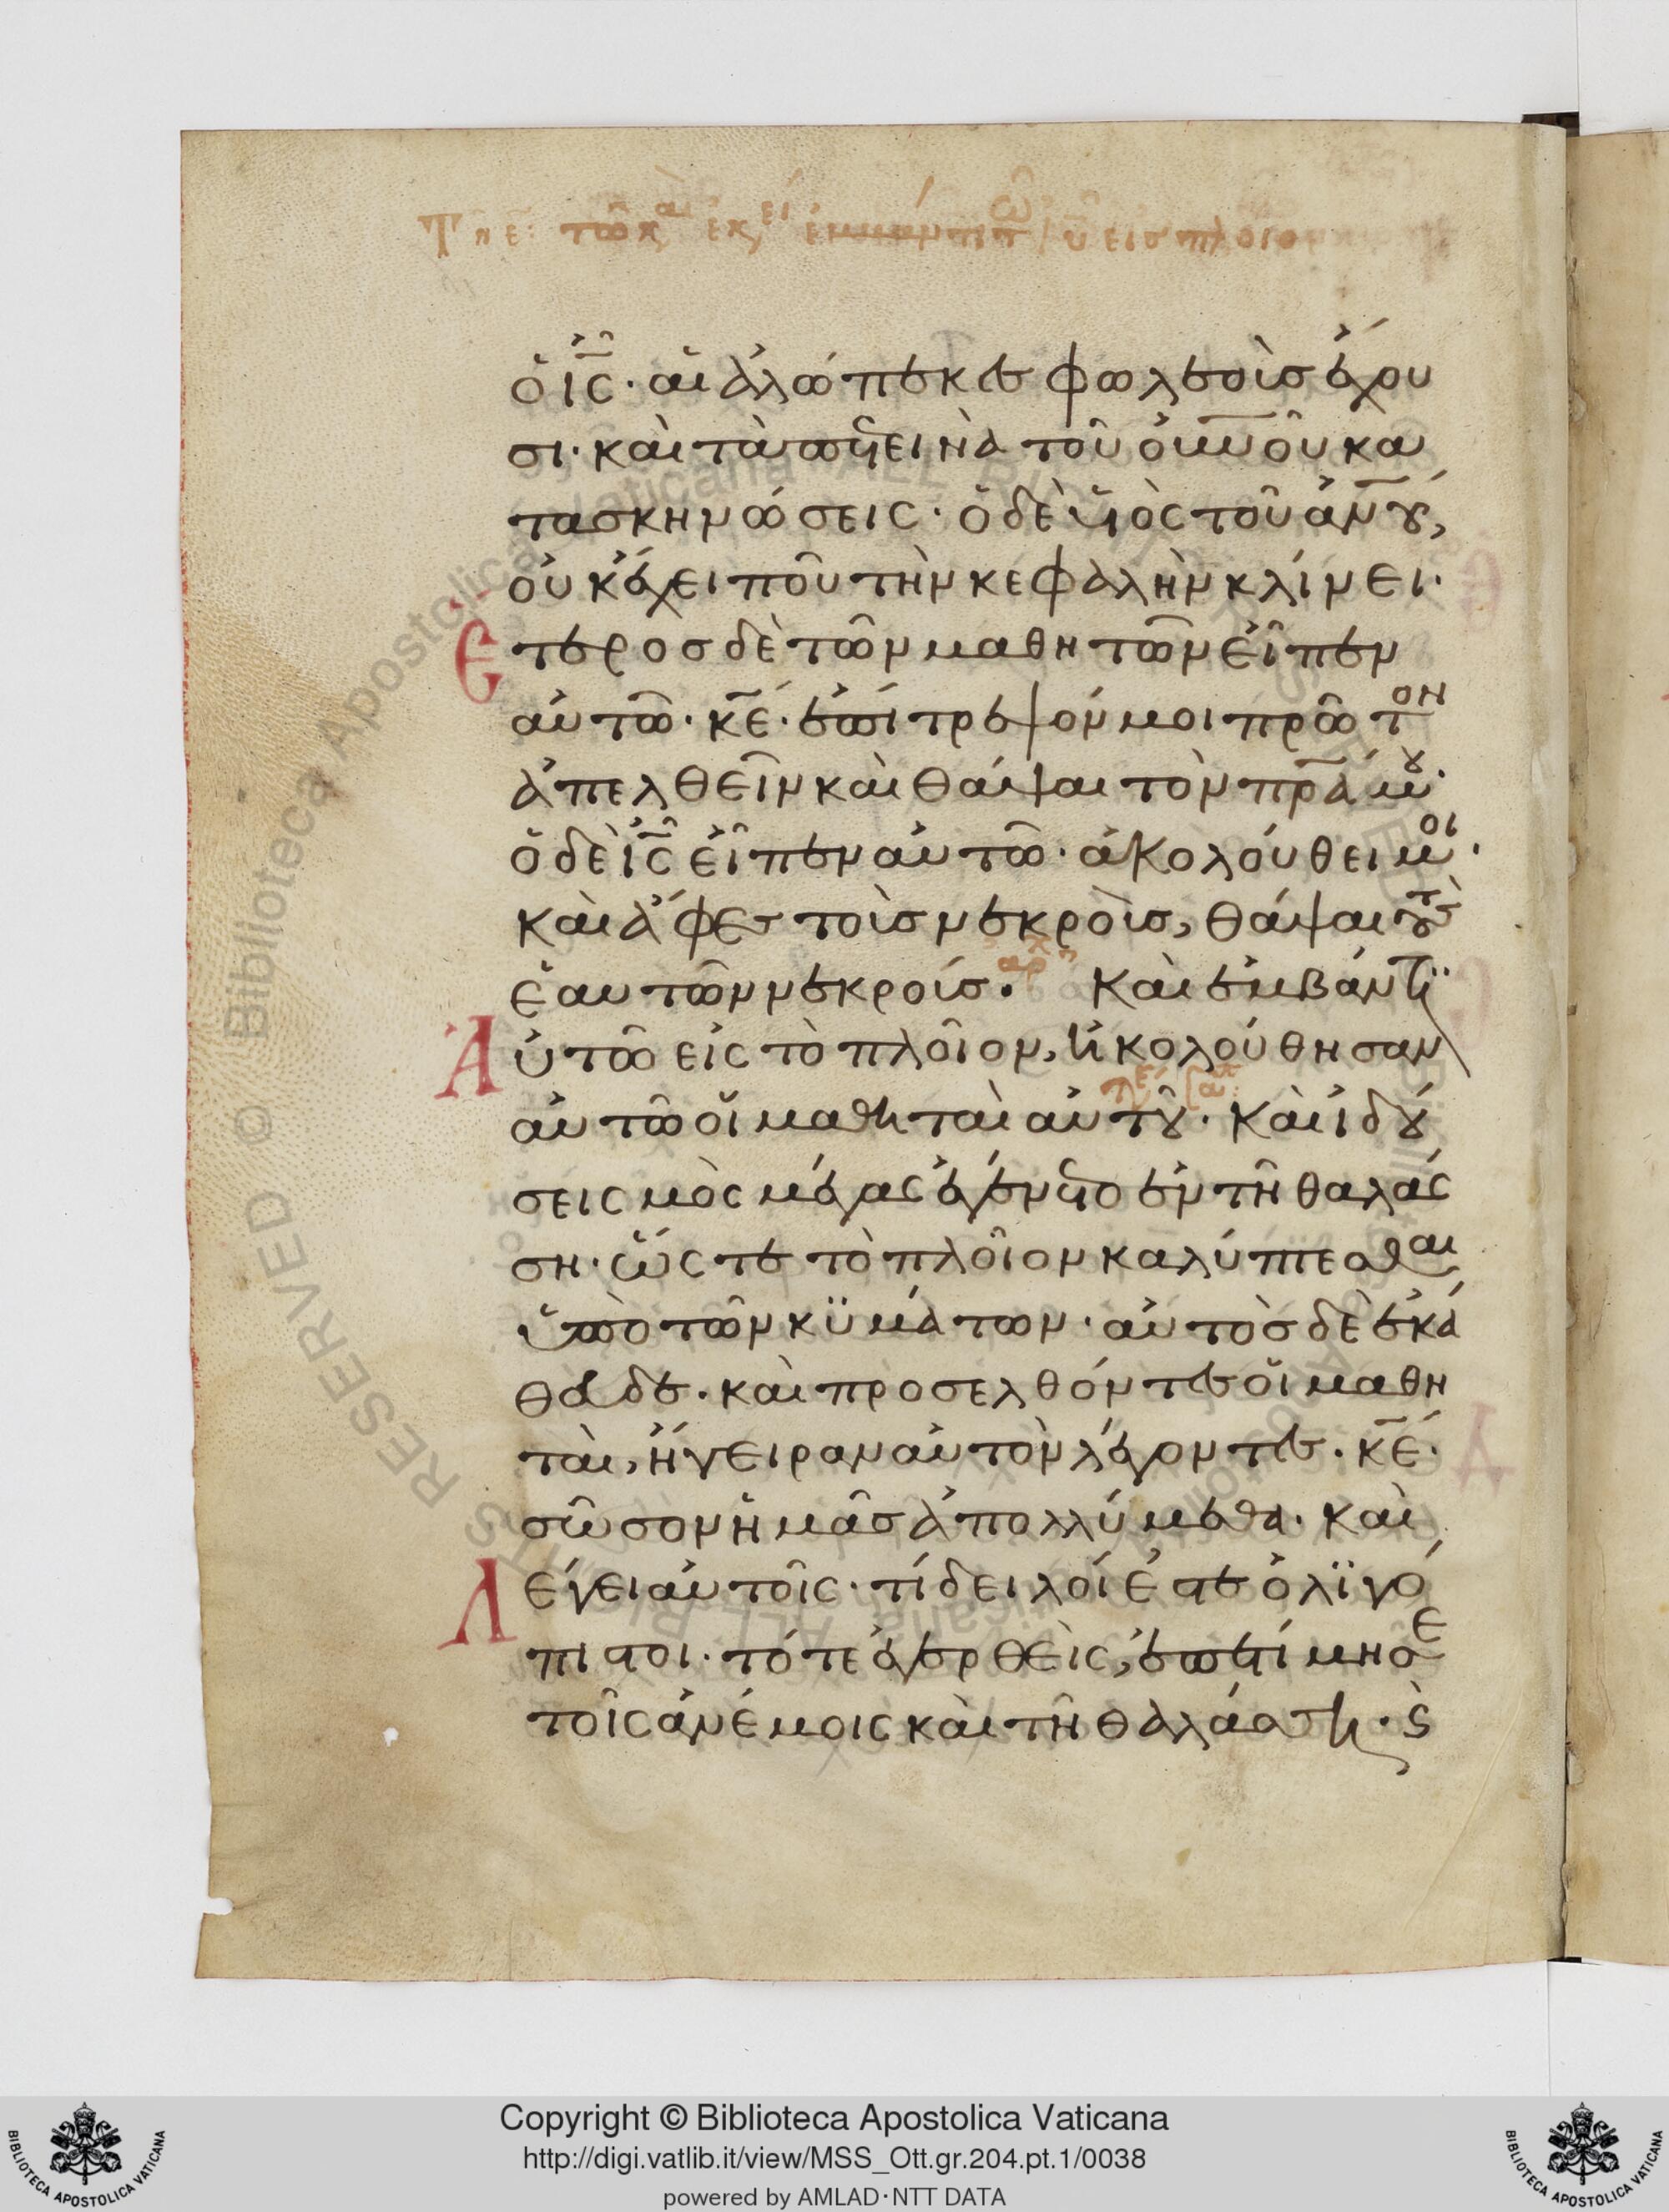 ὁ ἰ̅ς̅· αἱ ἀλώπεκες φωλεοὺς ἔχου
σι· καὶ τὰ πετεινὰ τοῦ ο̅υ̅ν̅οῦ κα
τασκηνώσεις· ὁ δὲ υἱὸς τοῦ ἀ̅ν̅ου,
οὐκ ἔχει ποῦ τὴν κεφαλὴν κλίνει·
Ἕτερος δὲ τῶν μαθητῶν εἶπεν
αὐτῶ· κ̅ε̅· ἐπίτρεψόν μοι πρῶτον
ἀπελθεῖν καὶ θάψαι τὸν π̅ρ̅α μου·
ὁ δὲ ἰ̅ς̅ εἶπεν αὐτῶ· ἀκολούθει μοι·
καὶ ἄφες τοὺς νεκροὺς, θάψαι τοὺς
ἑαυτῶν νεκρούς· Καὶ ἐμβάντι
Αὐτῶ εἰς τὸ πλοῖον, ἠκολούθησαν
αὐτῶ οἱ μαθηταὶ αὐτοῦ· Καὶ ἰδού
σεισμὸς μέγας ἐγένετο ἐν τῆ θαλάσ
ση· ὥστε τὸ πλοῖον καλύπτεσθαι
ὑπὸ τῶν κϋμάτων· αὐτὸς δὲ ἐκά
θευδε· καὶ προσελθόντες οἱ μαθη
ταὶ, ἤγειραν αὐτὸν λέγοντες· κ̅ε̅·
σῶσον ἡμᾶς ἀπολλύμεθα· καὶ
Λέγει αὐτοῖς· τί δειλοί ἐστε ὀλϊγό
πιστοι· τότε ἐγερθεὶς, ἐπετίμησε
τοῖς ἀνέμοις καὶ τῆ θαλάσση· ϗ
Copyright © Biblioteca Apostolica Vaticana
http://digi.vatlib.it/view/MSS_Ott.gr.204.pt.1/0038
powered by AMLAD·NTT DATA
BIBLIOTECA APOSTOLICA VATICANA
BIBLIOTECA APOSTOLICA VATICANA